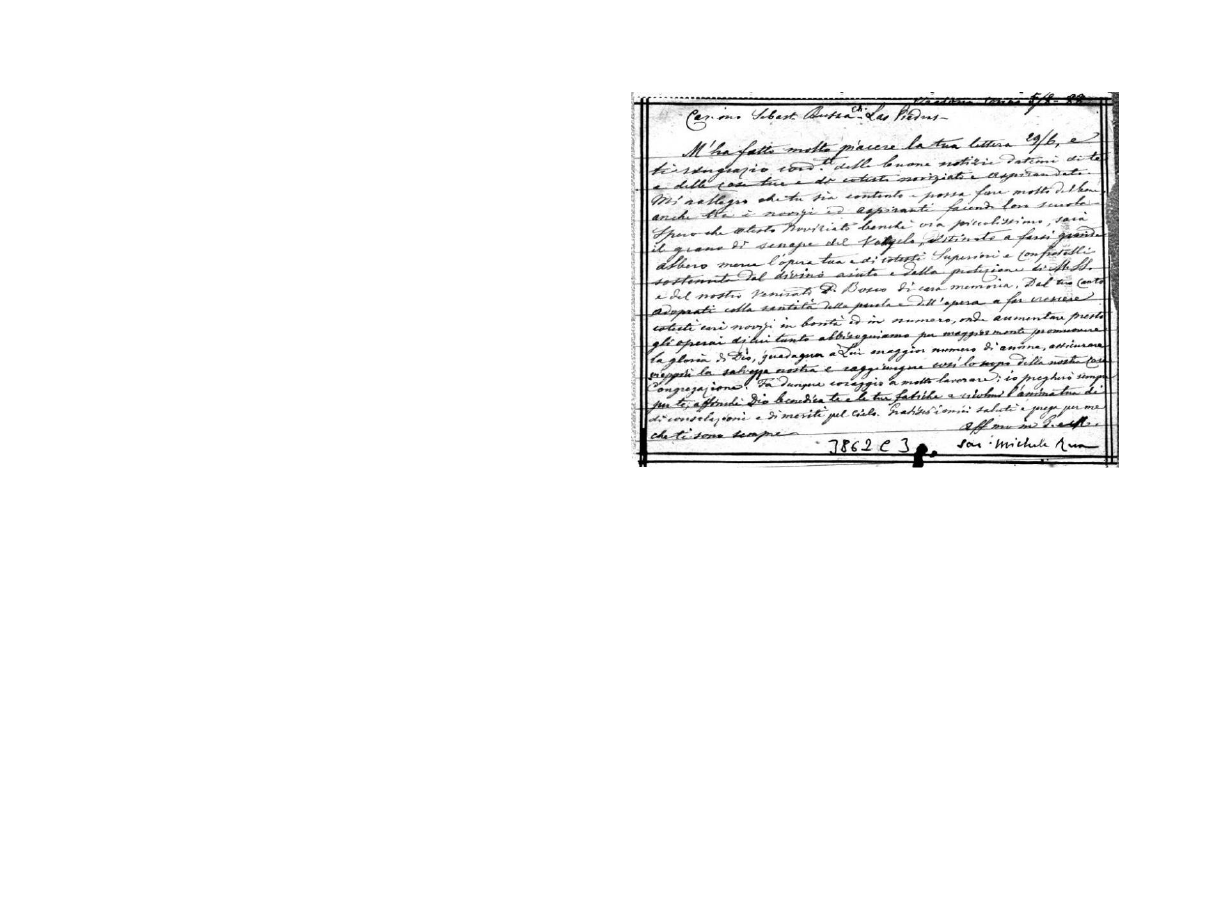 Car.mo Sebast ch. Las Piedras
M'ha fatto molto piacere la tua lettera 29/6, e
ti ringrazio cord.te delle buone notizie datemi di te
e delle cose tue e di cotesti noviziati e aspirandati.
Mi rallegro che tu sia contento e possa fare molto del bene
anche tra i novizi ed aspiranti facendo loro scuola
Spero che cotesto Noviziato benchè ora piccolissimo, sarà
il grano di senape del Vangelo, destinato a farsi grande
albero mercè l'opera tua e di cotesti Superiori e Confratelli
sostenuto dal divino aiuto e dalla protezione di M. SS.
e del nostro Venerato D. Bosco di cara memoria. Dal tuo canto
adoprati colla santità della parola e dell'opera a far crescere
cotesti cari novizi in bontà ed in numero, onde aumentare presto
gli operai di cui tanto abbisogniamo per maggiormente promuovere
la gloria di Dio, guadagnar a Lui maggior numero di anime, assicurare
vieppiù la salvezza nostra e raggiungere così lo scopo della nostra cara
Congregazione. Fa dunque coraggio a molto lavorare; io pregherò sempre
per te, affinchè Dio benedica te e le tue fatiche e ricolmi l'anima tua di
di consolazioni e di meriti pel cielo. Gradisci i miei saluti e prega per me
che ti sono sempre
aff.mo in
3862 C 3
Sac. Michele Rua